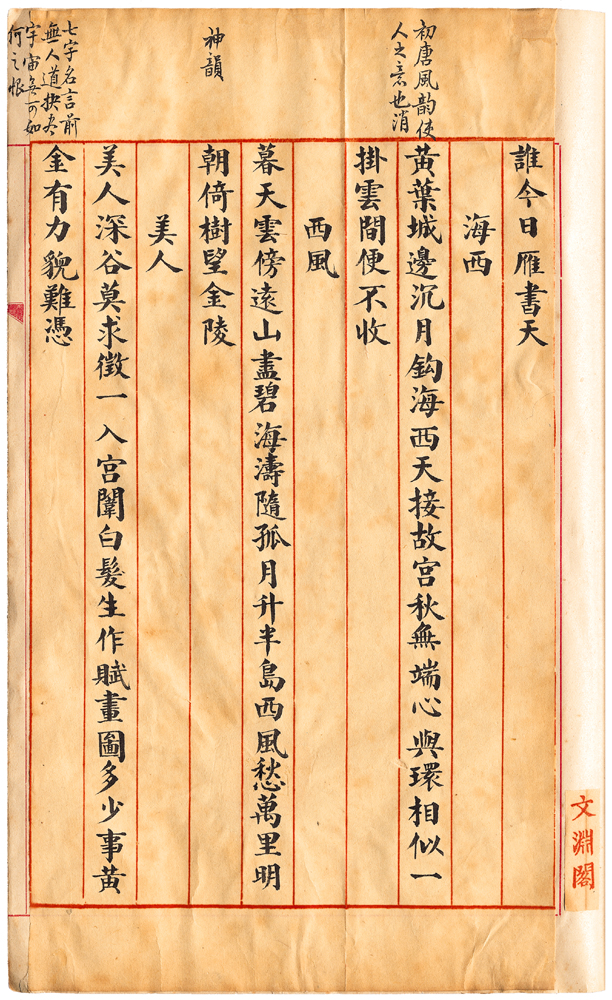 誰今日雁書天
海西
黃葉城邊沉月鈎海西天接故宮秋無端心與環相似一
掛雲間便不收
西風
暮天雲傍遠山盡碧海濤隨孤月升半島西風愁萬里明
朝倚樹望金陵
美人
美人深谷莫求徵一入宮闈白髮生作賦畫圖多少事黃
金有力貌難憑
初唐風韵使
人之意也消
神韻
七字名言前
無人道抉盡
宇宙無可如
何之恨
文淵閣